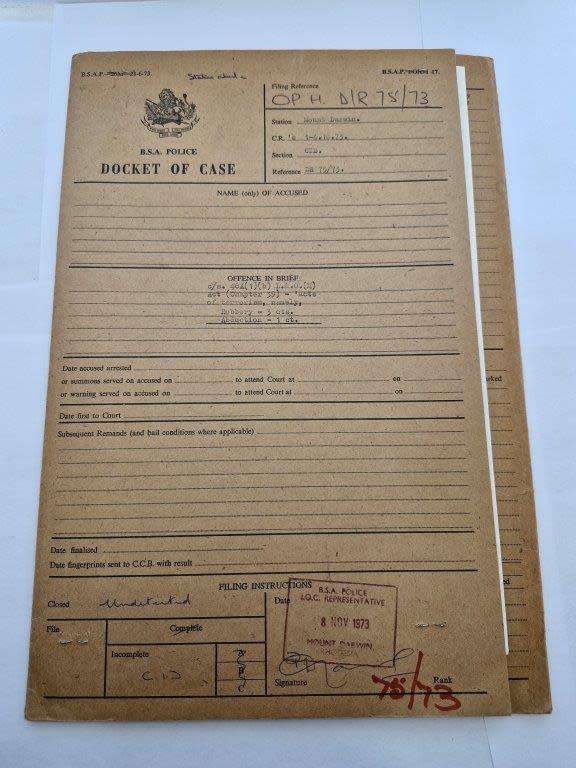 B.S.A.P. 23-6-73
B.S.A.P. 47.
Filing Reference
OP H D/R 78/73
Station Mount Darwin.
C.R.
Section CID.
Reference 78/73.
B.S.A. POLICE
DOCKET OF CASE
NAME (only) OF ACCUSED
OFFENCE IN BRIEF
Act (Chapter 39) - 'Acts
of terrorism, namely,
Robbery - 3 cts.
Abduction - 1 ct.
Date accused arrested
or summons served on accused on to attend Court at on
or warning served on accused on to attend Court at on
arked
Date first to Court
Subsequent Remands (and bail conditions where applicable)
Date finalised
Date fingerprints sent to C.C.B. with result
FILING INSTRUCTIONS
Closed Undetected
Date
B.S.A. POLICE
J.O.C. REPRESENTATIVE
8 NOV 1973
MOUNT DARWIN
File
Complete
Incomplete
CID
A
B
C
Signature
Rank
78/73